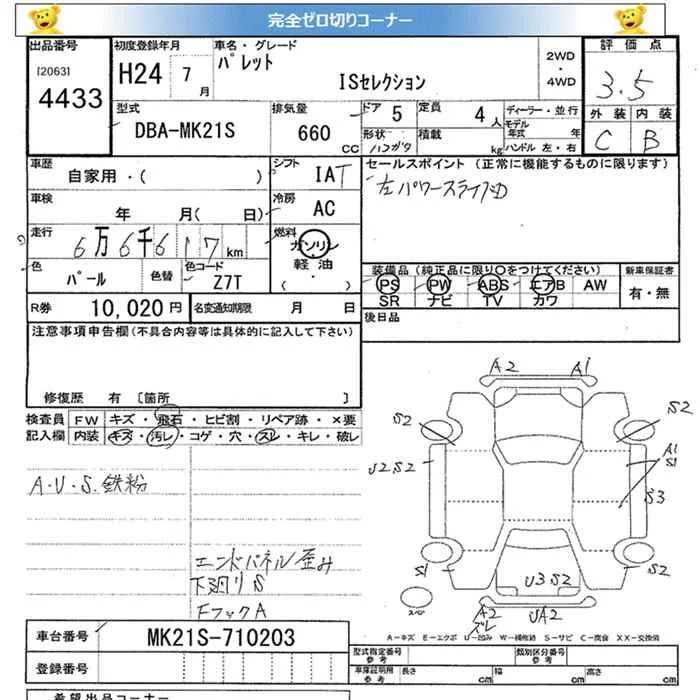 完全ゼロ切りコーナー
出品番号 初度登録年月 車名・グレード 評価点
[2063] 4433 H24 7月 パレット ISセレクション 2WD・4WD 3.5
型式 排気量 ドア 5 定員 4人 ディーラー・並行 外装 内装
DBA-MK21S 660cc 形状 ハコガタ 積載 kg モデル年式 年 ハンドル 左・右 C B
車歴 自家用・( ) シフト IAT セールスポイント(正常に機能するものに限ります)
車検 年 月( 日) 冷房 AC 左パワースライドD
走行 6万6千617km 燃料 ガソリン・軽油・( )
色 パール 色替 色コード Z7T 装備品(純正品に限り○をつけてください) 新車保証書
PS PW ABS エアB AW 有・無
SR ナビ TV カワ
R券 10,020円 名変通知期限 月 日 後日品
注意事項申告欄(不具合内容等は具体的に記入して下さい)
修復歴 有 [箇所 ]
検査員 FW キズ・飛石・ヒビ割・リペア跡・×要
記入欄 内装 キズ・汚レ・コゲ・穴・スレ・キレ・破レ
A2 A1
S2 S2
U2S2 A1 S1
A・U・S.鉄粉 S3
エンドパネル歪み S1 S2
下廻りS U3S2
FフックA スペア A2 ズレ UA2
A-キズ E-エクボ U-凹み W-補修跡 S-サビ C-腐食 XX-交換済
車台番号 MK21S-710203
型式指定番号 参考 類別区分番号 参考
登録番号 車庫証明用 参考 長さ cm 幅 cm 高さ cm
希望出品コーナー